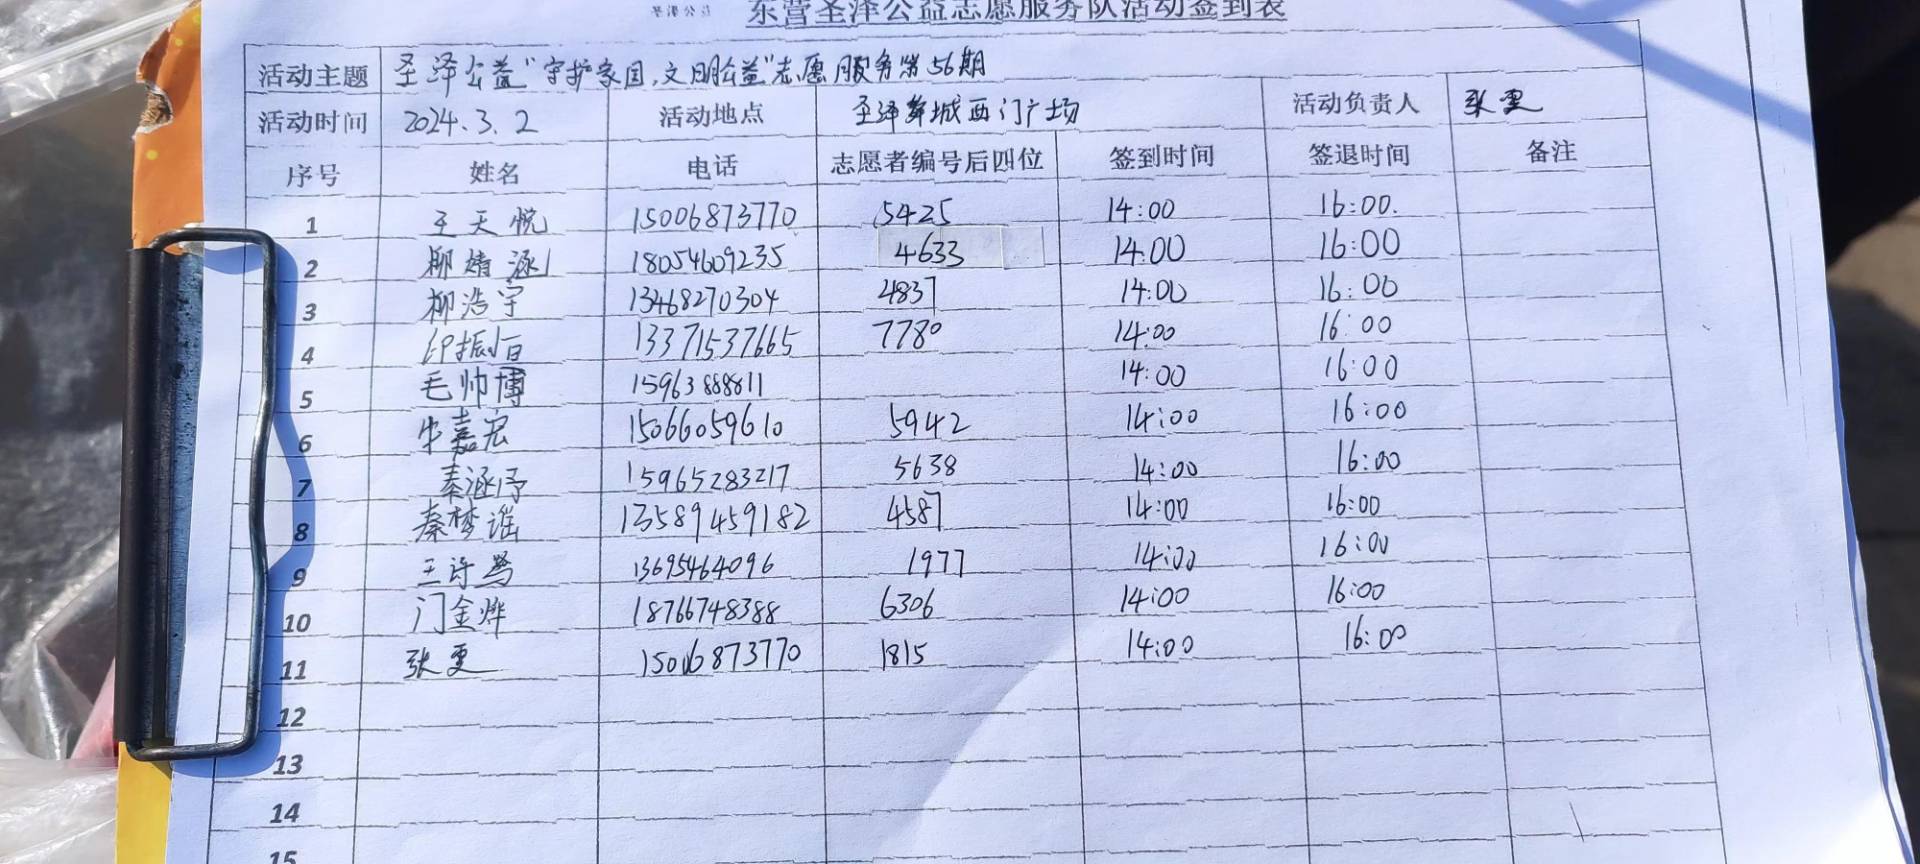 圣泽公益
东营圣泽公益志愿服务队活动签到表
活动主题 圣泽公益“守护家园，文明公益”志愿服务第56期
活动时间 2024.3.2 活动地点 圣泽舜城西门广场 活动负责人 张雯
序号 姓名 电话 志愿者编号后四位 签到时间 签退时间 备注
1 王天悦 15006873770 5425 14:00 16:00.
2 柳婧涵 18054609235 4633 14:00 16:00
3 柳浩宇 13468270304 4837 14:00 16:00
4 印振恒 13371537665 7780 14:00 16:00
5 毛帅博 15963888811 14:00 16:00
6 牛嘉宏 15066059610 5942 14:00 16:00
7 秦涵予 15965283217 5638 14:00 16:00
8 秦梦谣 13589459182 4587 14:00 16:00
9 王诗 13695464096 1977 14:00 16:00
10 门金烨 18766748388 6306 14:00 16:00
11 张雯 15006873770 1815 14:00 16:00
12
13
14
15